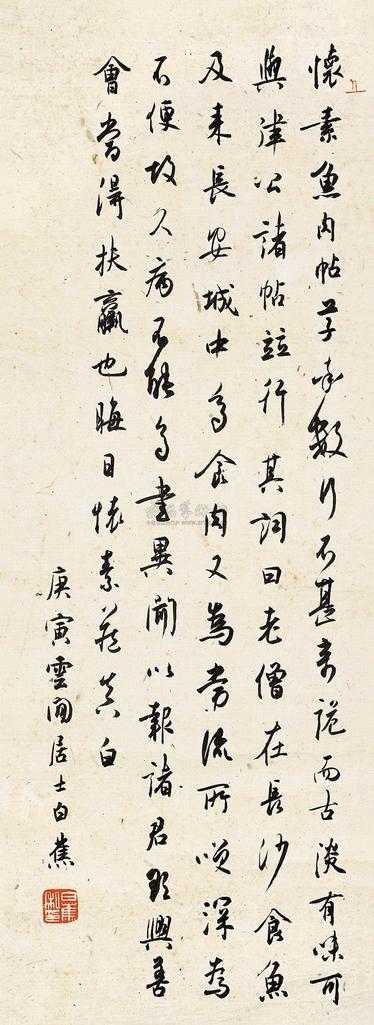 懷素魚肉帖草率數行不甚奇詭而古淡有味可
與律公諸帖竝行其詞曰老僧在長沙食魚
及來長安城中多食肉又為常流所咲深為
不便故久病不能多書異聞以報諸君欲興善
會當得扶羸也晦日懷素藏真白
庚寅雲間居士白蕉